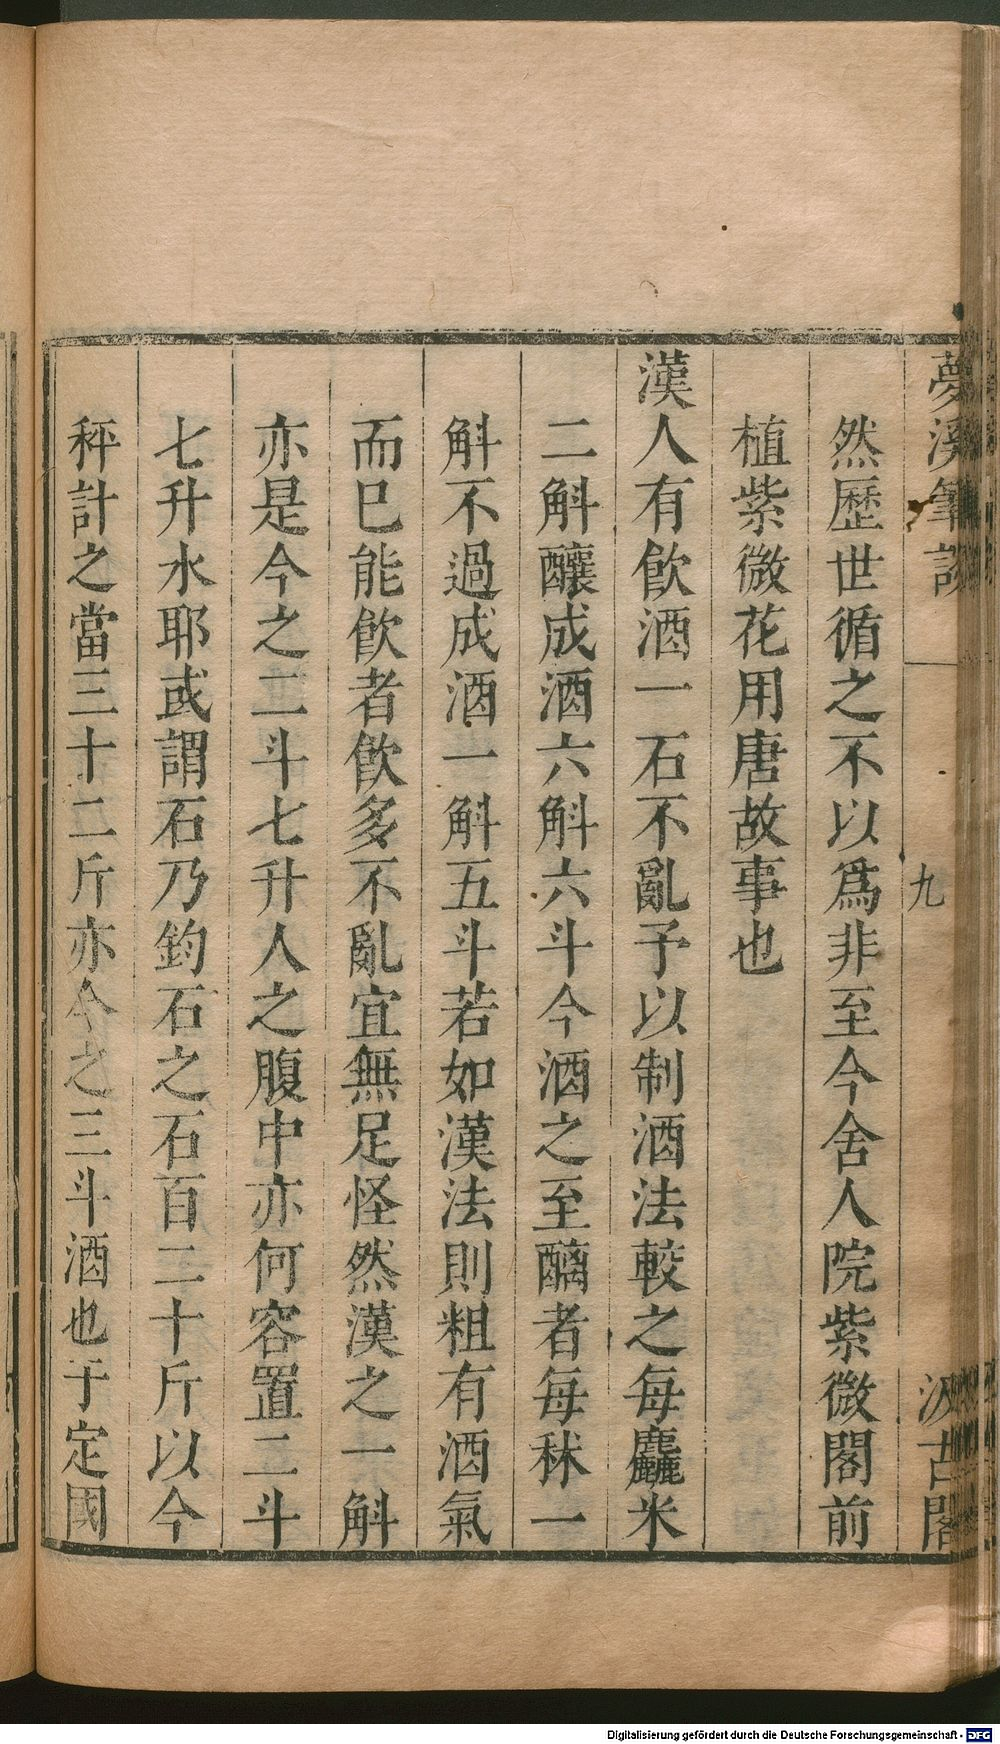 夢溪筆談
九
汲古閣
然歷世循之不以爲非至今舍人院紫微閣前
植紫微花用唐故事也
漢人有飲酒一石不亂予以制酒法較之每麤米
二斛釀成酒六斛六斗今酒之至醨者每秫一
斛不過成酒一斛五斗若如漢法則粗有酒氣
而巳能飲者飲多不亂宜無足怪然漢之一斛
亦是今之二斗七升人之腹中亦何容置二斗
七升水耶或謂石乃鈞石之石百二十斤以今
秤計之當三十二斤亦今之三斗酒也于定國
Digitalisierung gefördert durch die Deutsche Forschungsgemeinschaft - DFG